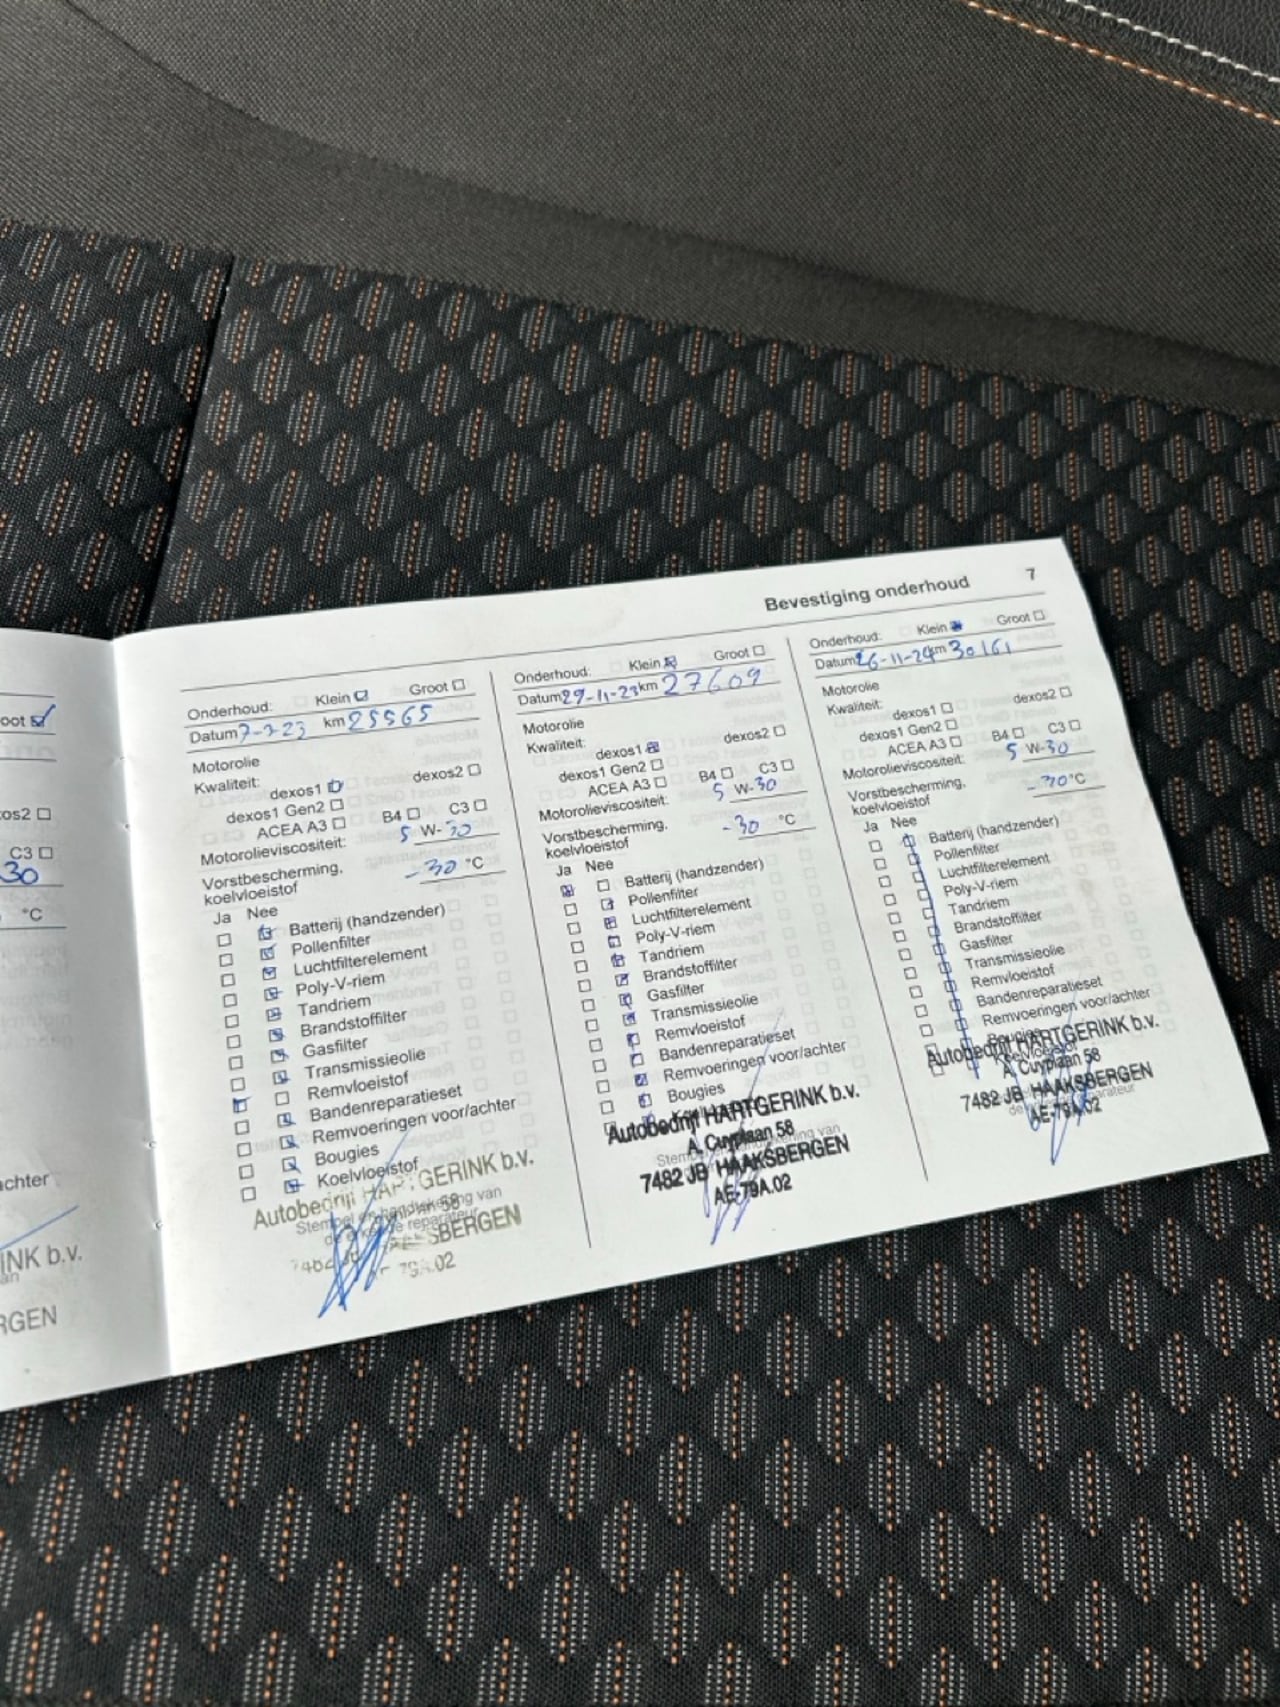 Bevestiging onderhoud 7
oot
os2
C3
30
°C
achter
INK b.v.
RGEN
Onderhoud: Klein Groot
Datum 7-2-23 km 25565
Motorolie
Kwaliteit:
dexos1 dexos2
dexos1 Gen2
ACEA A3 B4 C3
Motorolieviscositeit: 5 W-30
Vorstbescherming,
koelvloeistof -30 °C
Ja Nee
Batterij (handzender)
Pollenfilter
Luchtfilterelement
Poly-V-riem
Tandriem
Brandstoffilter
Gasfilter
Transmissieolie
Remvloeistof
Bandenreparatieset
Remvoeringen voor/achter
Bougies
Koelvloeistof
Autobedrijf HARTGERINK b.v.
Stempel en handtekening van
de erkende reparateur
SBERGEN
79A.02
Onderhoud: Klein Groot
Datum 29-11-23 km 27609
Motorolie
Kwaliteit:
dexos1 dexos2
dexos1 Gen2
ACEA A3 B4 C3
Motorolieviscositeit: 5 W-30
Vorstbescherming,
koelvloeistof -30 °C
Ja Nee
Batterij (handzender)
Pollenfilter
Luchtfilterelement
Poly-V-riem
Tandriem
Brandstoffilter
Gasfilter
Transmissieolie
Remvloeistof
Bandenreparatieset
Remvoeringen voor/achter
Bougies
Autobedrijf HARTGERINK b.v.
A. Cuyplaan 58
7482 JB HAAKSBERGEN
AE-79A.02
Onderhoud: Klein Groot
Datum 26-11-24 km 30161
Motorolie
Kwaliteit:
dexos1 dexos2
dexos1 Gen2
ACEA A3 B4 C3
Motorolieviscositeit: 5 W-30
Vorstbescherming,
koelvloeistof -30 °C
Ja Nee
Batterij (handzender)
Pollenfilter
Luchtfilterelement
Poly-V-riem
Tandriem
Brandstoffilter
Gasfilter
Transmissieolie
Remvloeistof
Bandenreparatieset
Remvoeringen voor/achter
Bougies
Koelvloeistof
Autobedrijf HARTGERINK b.v.
A. Cuyplaan 58
7482 JB HAAKSBERGEN
AE-79A.02